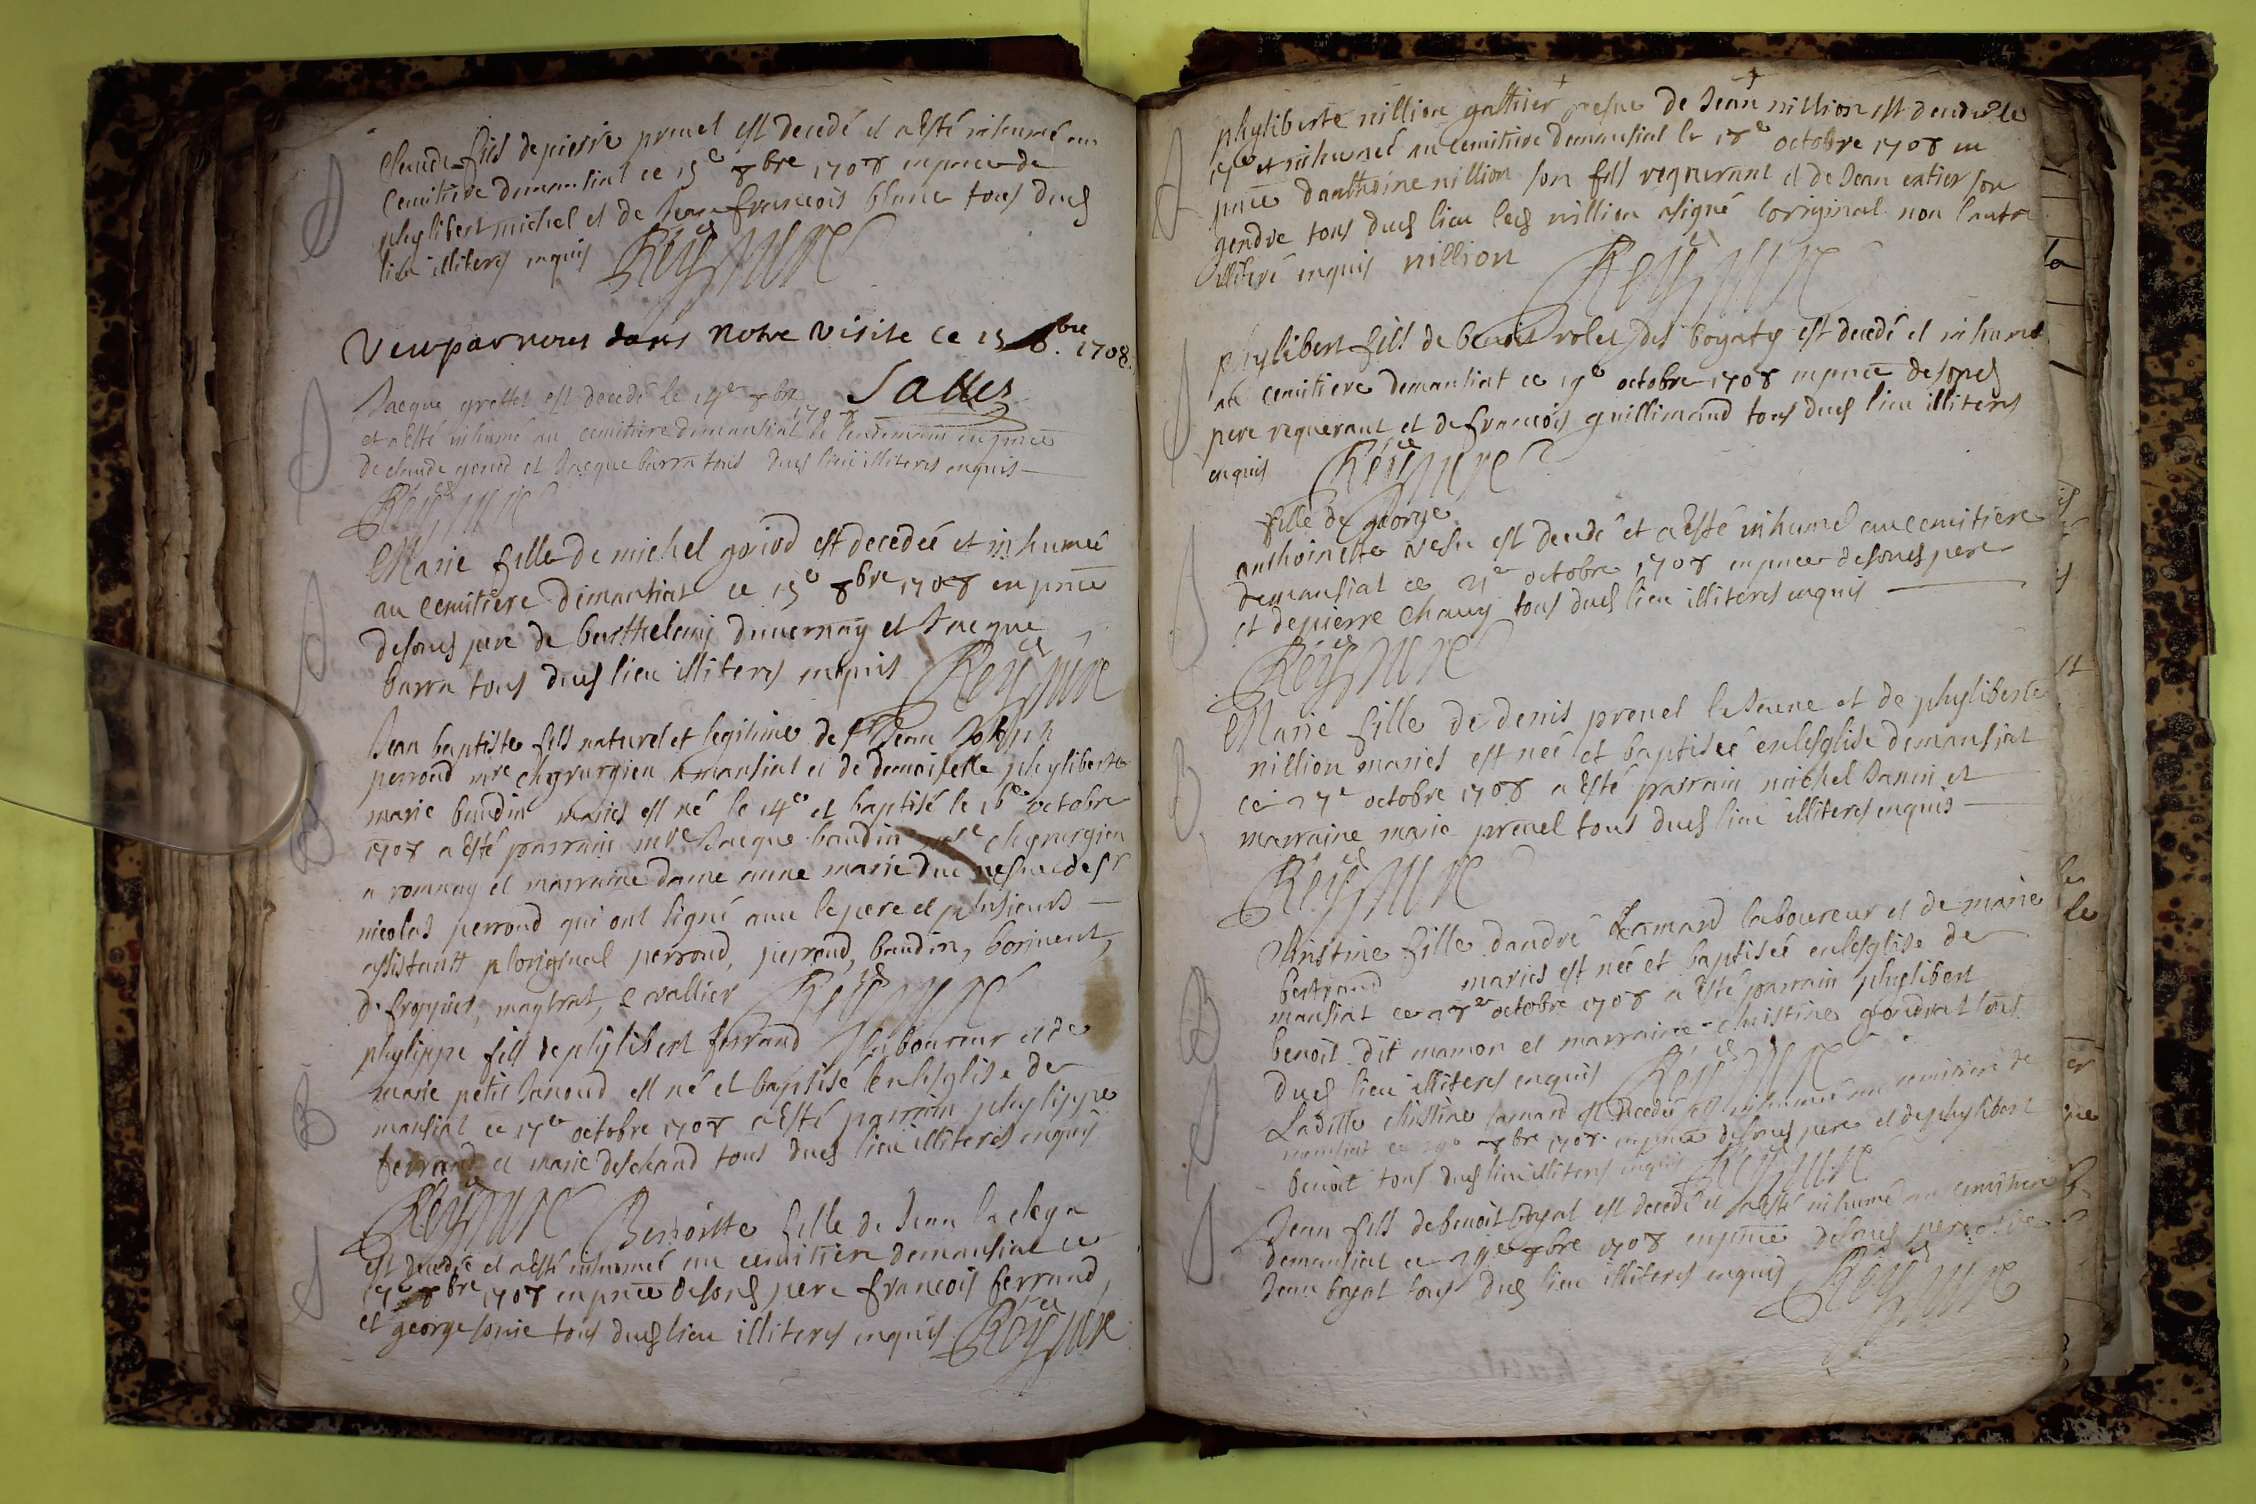 Claude fils de pierre premel est decedé et a esté inhumé au
Cemitiere de mantial ce 15e 8bre 1708 en pnce de
phylibert michel et de Jean francois blanc tous dud
lieu illiteres enquis Rey curé
Veu par nous dans notre visite ce 15 8bre 1708.
Salles
Jacque grettet est decedé le 14e 8bre 1708
et a esté inhumé au cemitiere de mansiat le lendemain en pnce
de claude gonod et Jacque barra tous dud lieu illiteres enquis
Rey curé
Marie fille de michel goriod est decedeé et inhumeé
au cemitiere de mantiat ce 15e 8bre 1708 en pnce
de sond pere de barthelemy duvernay et Jacque
barra tous dud lieu illiteres enquis Rey curé
Jean baptiste fils naturel et legitime de sr Jean Joseph
perroud mre chyrurgien a mansiat et de demoiselle phyliberte
marie baudin mariés est né le 14e et baptisé le 16e octobre
1708 a esté parrain Jacque baudin mre chyrurgien
a romnay et marraine dame anne marie duc de sr
nicolas perroud qui ont signé avec le pere et plusieurs
assistantt a loriginal perroud, perroud, baudin, borjurent,
maytrat, cvallier Rey curé
phylippe fils de phylibert ferrand laboureur et de
marie petit Janoud est né et baptisé en lesglise de
mansiat ce 17e octobre 1708 a esté parrain phylippe
ferrand et marie deschand tous dud lieu illiteres enquis
Rey curé Benoiste fille de Jean laclaya
est decedé et a esté inhumeé au cemitiere de mansiat ce
17e 8bre 1708 en pnce de sond pere francois ferrand,
et george sonie tous dud lieu illiteres enquis Rey curé
phyliberte nillion galhier vesve de Jean nillion est decedeé le
17e et inhumeé au cemitiere de mansiat le 18e octobre 1708 en
pnce danthoine nillion son fils requerant et de Jean entier son
gendre tous dud lieu led nillion a signé loriginal non lautre
illiteré enquis nillion Rey curé
phylibert fils de benoit rolet des bogaty est decedé et inhumé
au cemitiere de mansiat ce 19e octobre 1708 en pnce de sond
pere requerant et de francois guillimaud tous dud lieu illiteres
enquis Rey curé
fille de george
anthoinette est decedé et a esté inhumeé au cemitiere
de mansiat ce 21e octobre 1708 en pnce de sond pere
et de pierre chavy tous dud lieu illiteres enquis
Rey curé
Marie fille de denis prenel le Jeune et de phyliberte
nillion mariés est neé et baptiseé en lesglise de mansiat
ce 27e octobre 1708 a esté parrain michel Janin et
marraine marie prenel tous dud lieu illiteres enquis
Rey curé
Christine fille dandré Lamard laboureur et de marie
bertrand mariés est neé et baptiseé en lesglise de
mansiat ce 28e octobre 1708 a esté parrain phylibert
benoit dit mamon et marraine christine goudrat tous
dud lieu illiteres enquis Rey curé
Ladite christine lamard est decedeé et inhumeé au cemitiere de
mansiat ce 29e 8bre 1708 en pnce de sond pere et de phylibert
benoit tous dud lieu illiteres enquis Rey curé
Jean fils de benoit boyat est decedé et a esté inhumé au cemitiere
de mansiat ce 29e 8bre 1708 en pnce de sond pere
Jean boyat tous dud lieu illiteres enquis Rey curé